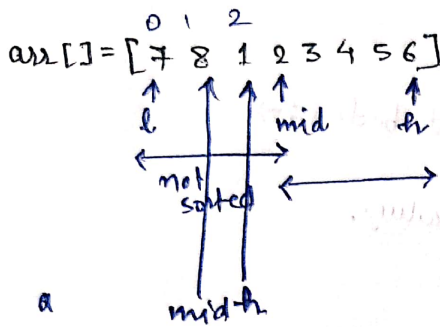 0 1 2
arr[] = [7 8 1 2 3 4 5 6]
l mid h
not
sorted
a mid h